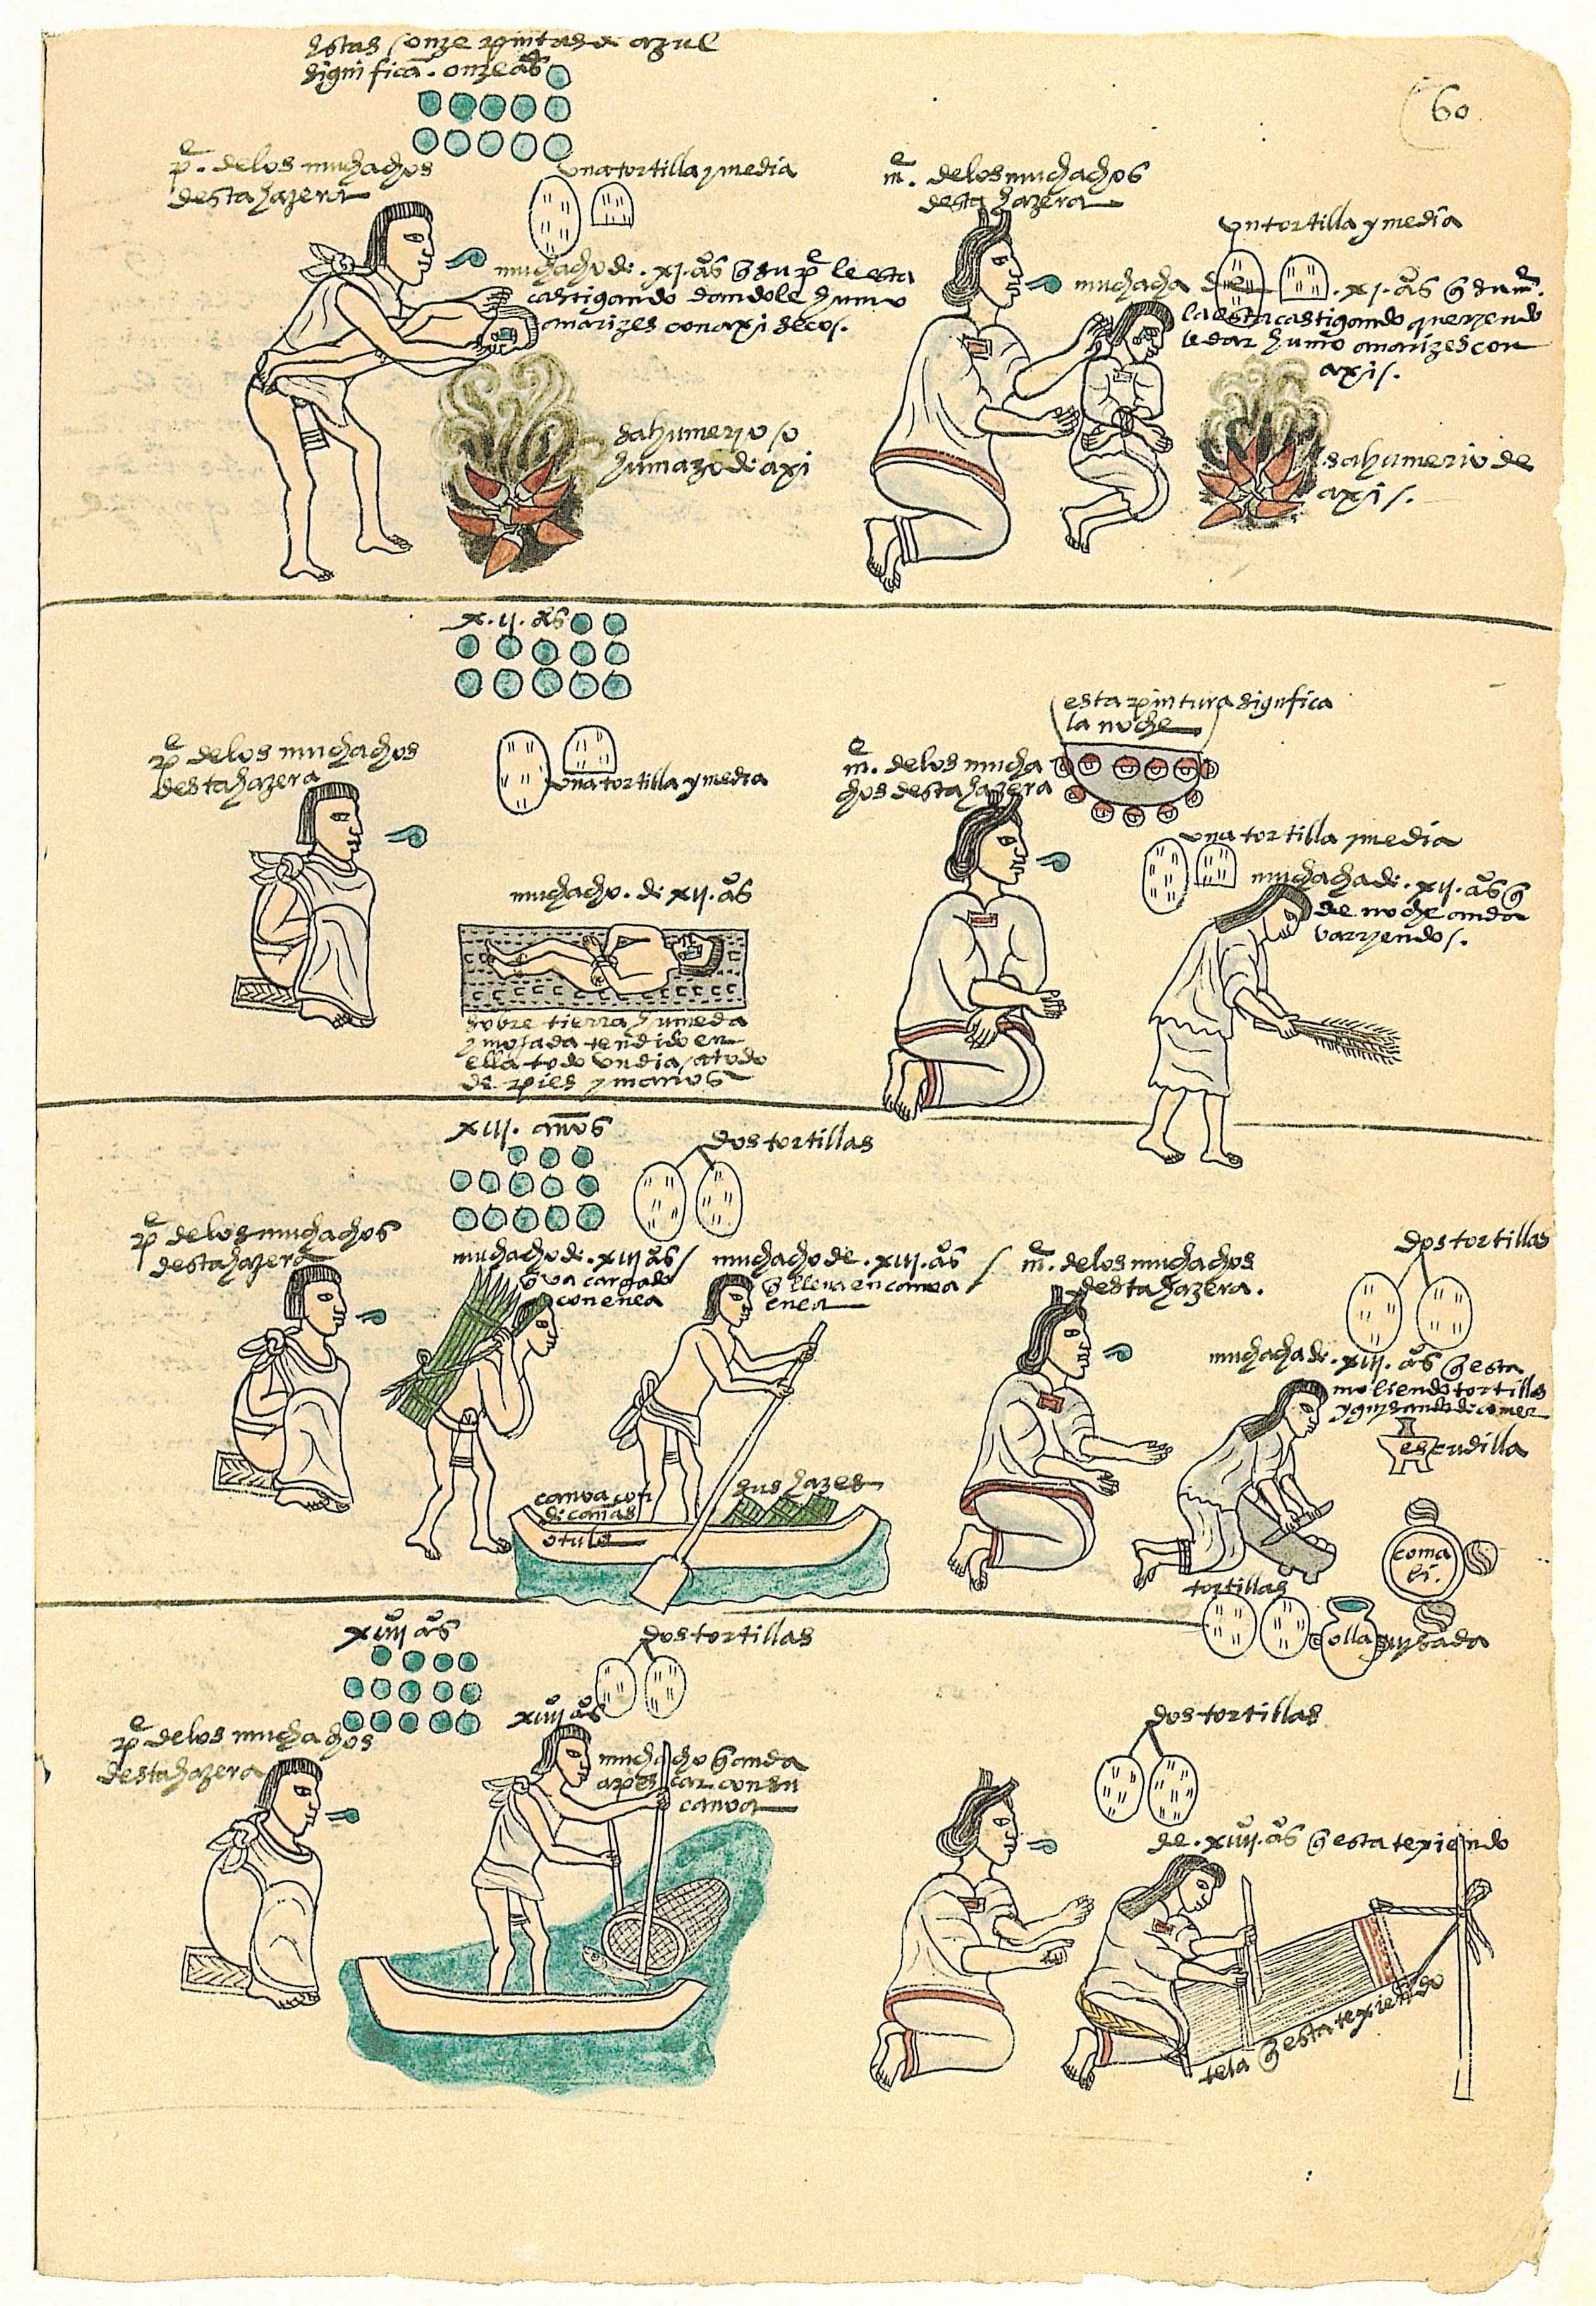 60
estas onze pintas de azul
significā. onze aºs
pe. de los muchachos
desta hazera
una tortilla y media
muchacho de. xj. aºs q̄ su pe le esta
castigando dandole humo
a narizes con axi secos.
sahumerio o
humazo de axi
me. de los muchachos
desta hazera
un tortilla y media
muchacha de. xj. aºs q̄ su me.
la esta castigando queryendo
le dar humo a narizes con
axis.
sahumerio de
axis.
x.ij. aºs
pe de los muchachos
desta hazera
una tortilla y media
muchacho. de xij. aºs
sobre tierra humeda
y mojada tendido en
ella todo un dia atado
de pies y manos
esta pintura significa
la noche
me. de los mucha
chos desta hazera
una tortilla y media
muchacha de. xij. aºs q̄
de noche anda
varryendo.
xiij. años
dos tortillas
pe de los muchachos
desta hazera
muchacho de. xiij aºs
q̄ va cargado
con enea
muchacho de. xiij. aºs
q̄ lleva en canoa
enea
canoa con
de cañas
o tule
sus hazes
me. de los muchachos
desta hazera.
dos tortillas
muchacha de. xiij. aºs q̄ esta
moliendo tortillas
y guysando de comer
escudilla
coma
li.
tortillas
olla guysada
xiiij aºs
dos tortillas
pe de los muchachos
desta hazera
xiiij aºs
muchacho q̄ anda
a pescar con su
canoa
dos tortillas
de. xiiij. aºs q̄ esta texiendo
tela q̄ esta texiendo